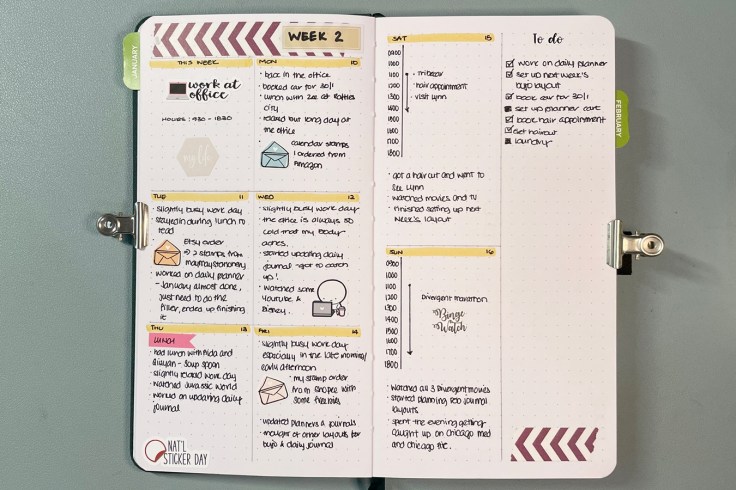 JANUARY
WEEK 2
THIS WEEK
work at
office
HOURS : 930 - 1830
my life
MON 10
· back in the office
· booked car for 30/1
· lunch with Zee at
City
· relaxed but long day at
the office
calendar stamps
I ordered from
Amazon
TUE 11
· slightly busy work day
· stayed in during lunch to
read
Etsy order
→ 2 stamps from
· worked on daily planner
- January almost done,
just need to do the
filler, ended up finishing
it
WED 12
· slightly busy work day
· the office is always so
cold that my body
aches.
· started updating daily
journal - got to catch
up!
· watched some
Youtube &
Disney.
THU 13
LUNCH
· had lunch with Aida and
- soup spoon
· slightly relaxed work day
· watched Jurassic World
· worked on updating daily
journal
NAT'L
STICKER DAY
FRI 14
· slightly busy work day
especially in the late morning/
early afternoon
· my stamp order
from Shopee with
some freebies
· updated planners & journals
· thought of other layouts for
bujo & daily journal
SAT 15
0900
1000
1100
1200
1300
1400
1500
1600
1700
1800
· hair appointment
· visit Lynn
· got a hair cut and went to
see Lynn
· watched movies and TV
· finished setting up next
week's layout
SUN 16
0900
1000
1100
1200
1300
1400
1500
1600
1700
1800
Divergent marathon
Binge
Watch
· watched all 3 Divergent movies
· started planning 200 journal
layouts.
· spent the evening getting
caught up on Chicago med
and Chicago fire.
To do
work on daily planner
set up next week's
bujo layout
book car for 30/1
set up planner cart
book hair appointment
get haircut
laundry
FEBRUARY